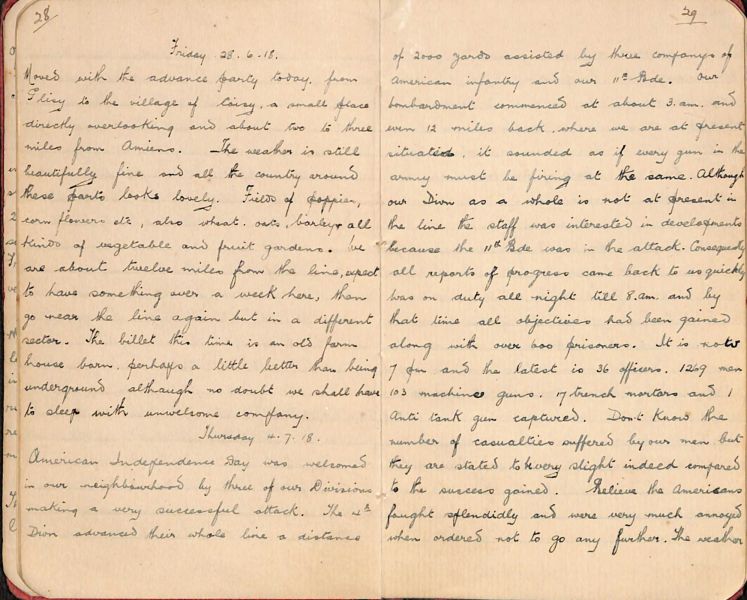 28
Friday 28.6.18.
Moved with the advance party today. from
Glisy to the village of Coisy, a small place
directly overlooking and about two to three
miles from Amiens. The weather is still
beautifully fine and all the country around
these parts looks lovely. Fields of poppies,
corn flowers etc, also wheat. oats, barley & all
kinds of vegetable and fruit gardens. We
are about twelve miles from the line, expect
to have something over a week here, then
go near the line again but in a different
sector. The billet this time is an old farm
house barn. perhaps a little better than being
underground although no doubt we shall have
to sleep with unwelcome company.
Thursday 4.7.18.
American Independence Day was welcomed
in our neighbourhood by three of our Divisions
making a very successful attack. The 4th
Divn advanced their whole line a distance
29
of 2000 yards assisted by three companys of
American infantry and our 11th Bde. Our
bombardment commenced at about 3.am. and
even 12 miles back, where we are at present
situated, it sounded as if every gun in the
army must be firing at the same. Although
our Divn as a whole is not at present in
the line the staff was interested in developments
because the 11th Bde was in the attack. Consequently
all reports of progress came back to us quickly
Was on duty all night till 8.am. and by
that time all objectives had been gained
along with over 600 prisoners. It is now
7 pm and the latest is 36 officers, 1269 men
103 machine guns. 17 trench mortars and 1
Anti tank gun captured. Dont know the
number of casualties suffered by our men but
they are stated to be very slight indeed compared
to the success gained. Believe the Americans
fought splendidly and were very much annoyed
when ordered not to go any further. The weather